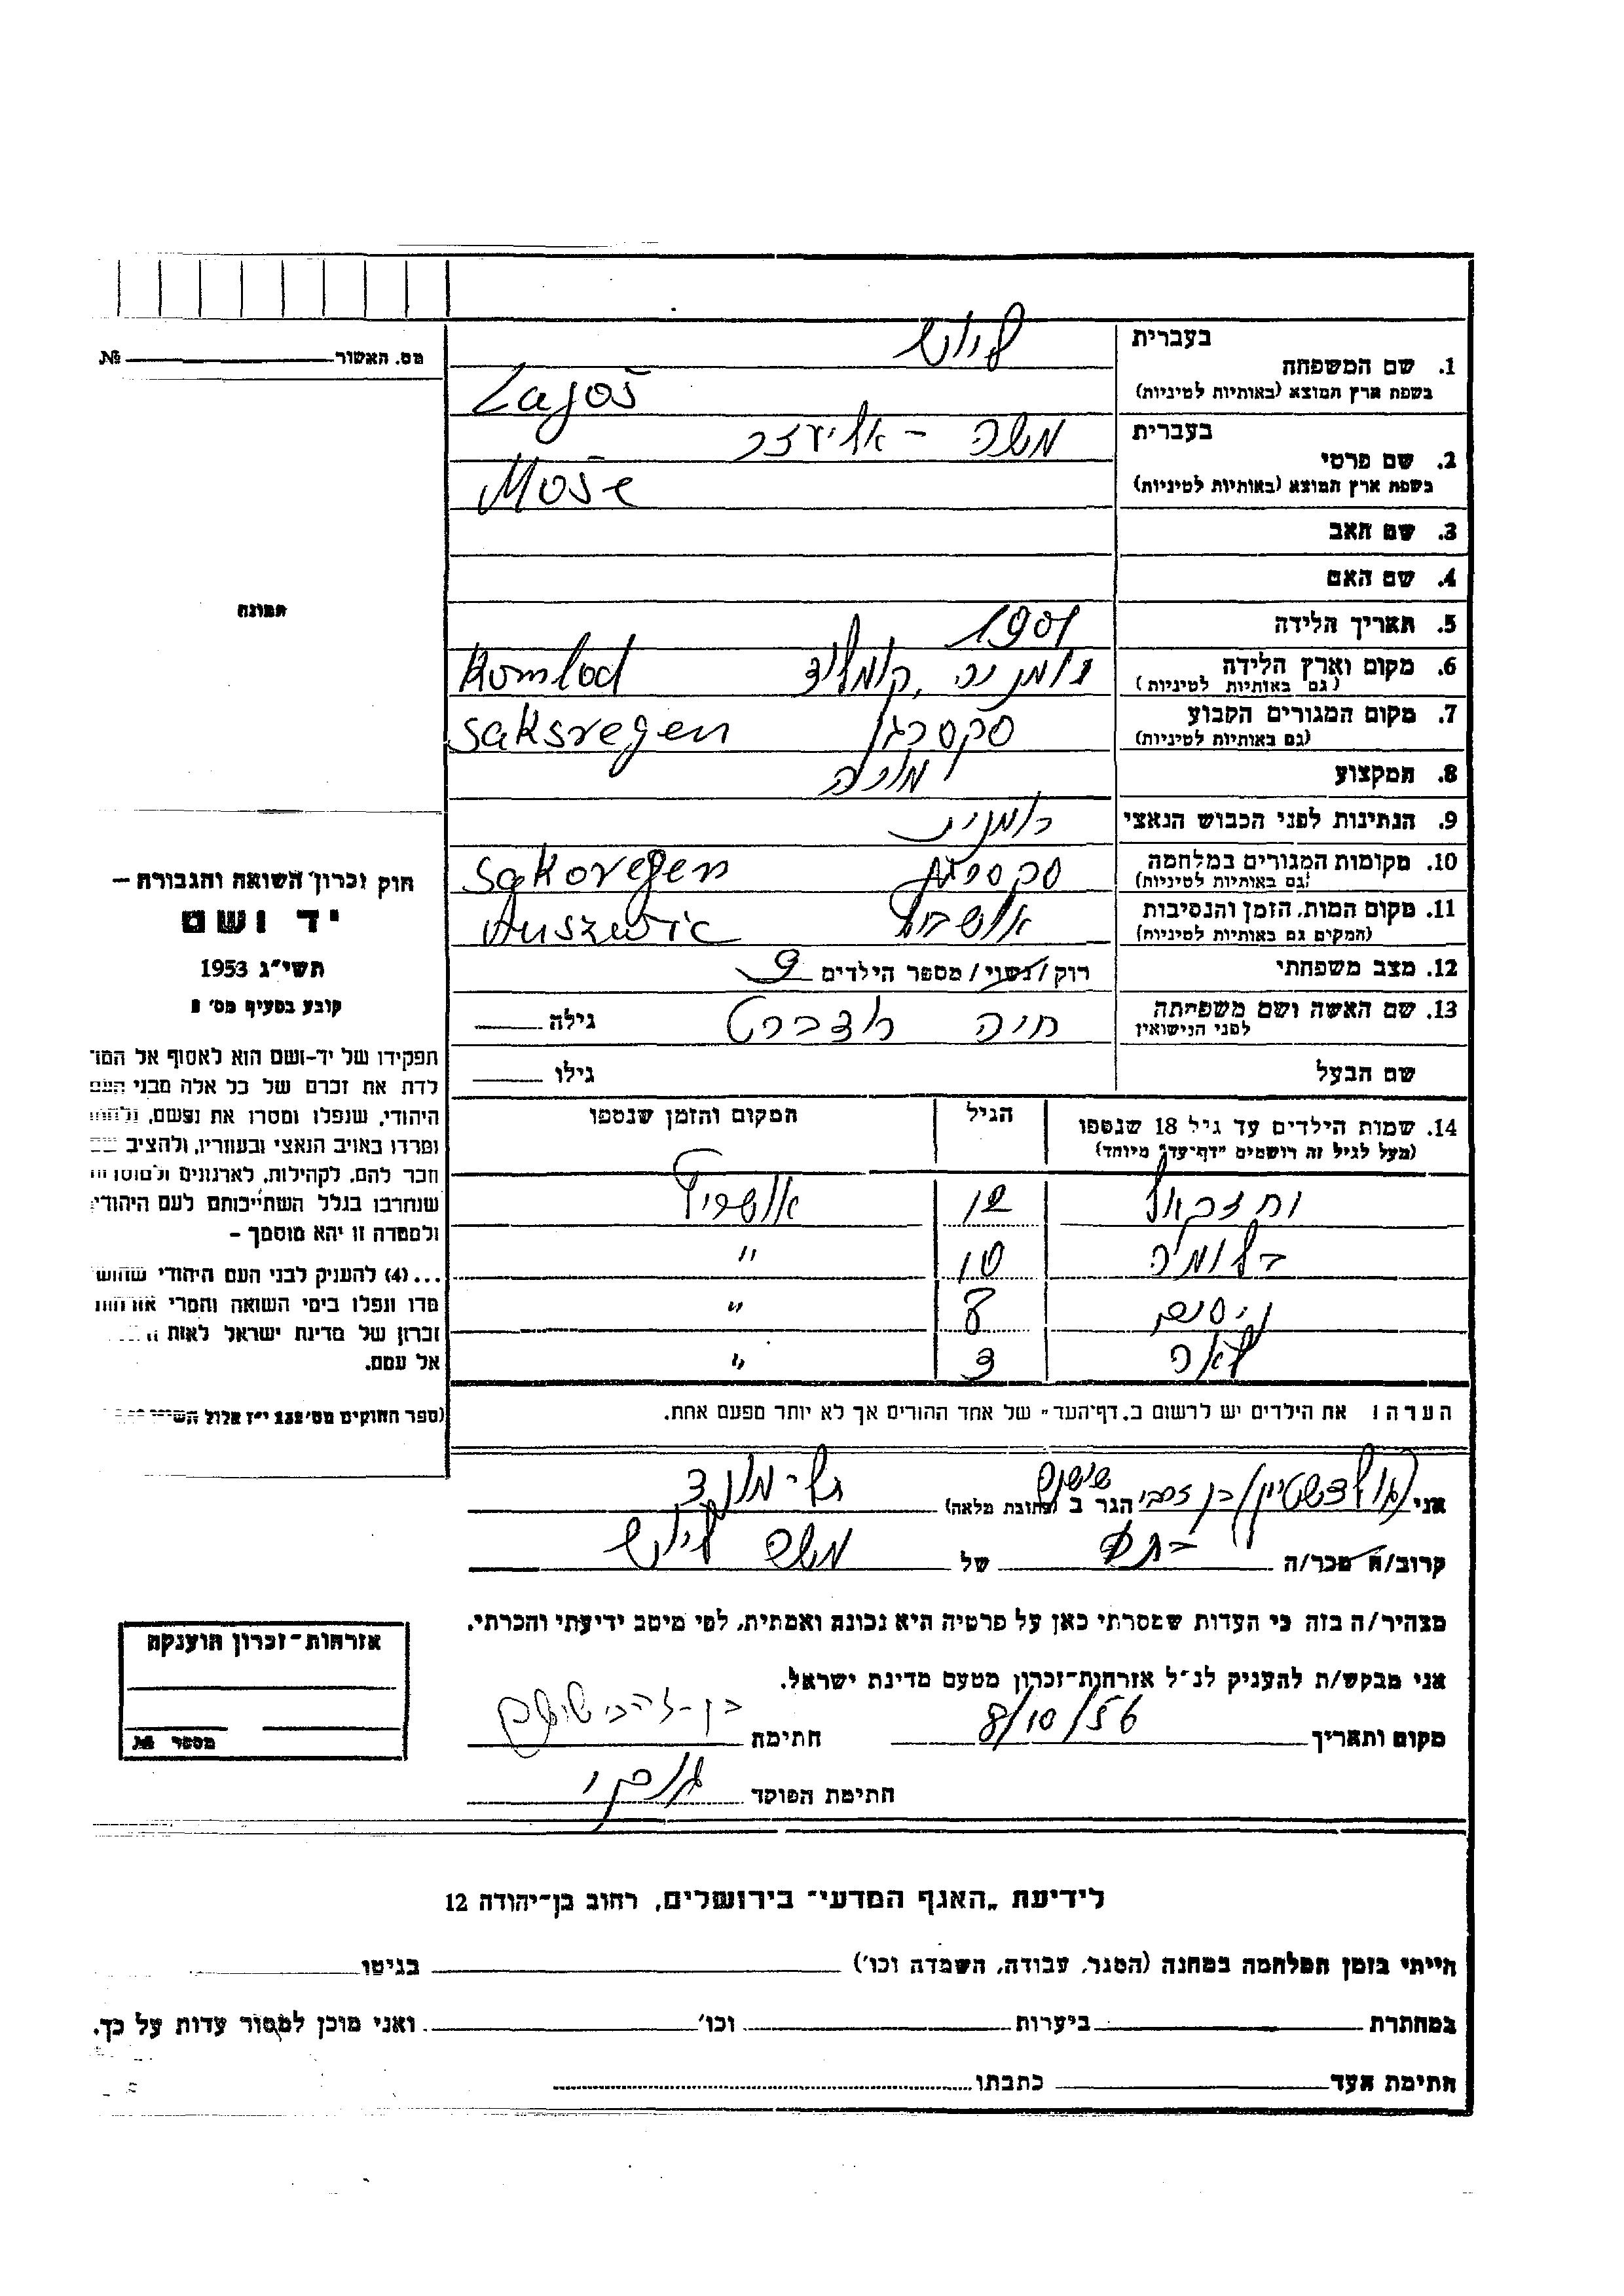 בעברית
1. שם המשפחה
בשפת ארץ המוצא (באותיות לטיניות)
Lajoš
בעברית
משה - אליעזר
2. שם פרטי
בשפת ארץ המוצא (באותיות לטיניות)
Moše
3. שם האב
4. שם האם
5. תאריך הלידה
1901
6. מקום וארץ הלידה
(גם באותיות לטיניות)
רומניה, קומלוד Komlod
7. מקום המגורים הקבוע
(גם באותיות לטיניות)
סקסרגן saksregen
8. המקצוע
מורה
9. הנתינות לפני הכבוש הנאצי
רומנית
10. מקומות המגורים במלחמה
(גם באותיות לטיניות)
סקסרגן saksregen
11. מקום המות, הזמן והנסיבות
(המקום גם באותיות לטיניות)
12. מצב משפחתי
רוק/נשוי/מספר הילדים 9
13. שם האשה ושם משפחתה
לפני הנישואין
חיה גילה
שם הבעל גילו
14. שמות הילדים עד גיל 18 שנספו
(מעל לגיל זה רושמים "דף-עד" מיוחד)
הגיל
המקום והזמן שנספו
12 אושויץ
בלומה 10 "
ניסים 8 "
לאה 3 "
הערה: את הילדים יש לרשום ב„דף-העד" של אחד ההורים אך לא יותר מפעם אחת.
אני (גולדשטיין) בן זהבי הגר ב (כתובת מלאה) תל-מונד
קרוב/ה מכר/ה של משה
מצהיר/ה בזה כי העדות שמסרתי כאן על פרטיה היא נכונה ואמתית, לפי מיטב ידיעתי והכרתי.
אני מבקש/ת להעניק לנ"ל אזרחות-זכרון מטעם מדינת ישראל.
מקום ותאריך 8/10/56 חתימה
חתימת הפוקד
מס. האשור №
תמונה
חוק זכרון השואה והגבורה —
יד ושם
תשי"ג 1953
קובע בסעיף מס' 2
תפקידו של יד-ושם הוא לאסוף אל המו
לדת את זכרם של כל אלה מבני העם
היהודי, שנפלו ומסרו את נפשם, נלחמו
ומרדו באויב הנאצי ובעוזריו, ולהציב שם
וזכר להם, לקהילות, לארגונים ולמוסדות
שנחרבו בגלל השתייכותם לעם היהודי,
ולמטרה זו יהא מוסמך —
...(4) להעניק לבני העם היהודי שהוש
מדו ונפלו בימי השואה והמרי אזרחות
זכרון של מדינת ישראל לאות
אל עמם.
(ספר החוקים מס' 132 י"ז אלול
אזרחות-זכרון הוענקה
מספר №
לידיעת „האגף המדעי" בירושלים, רחוב בן-יהודה 12
הייתי בזמן המלחמה במחנה (הסגר, עבודה, השמדה וכו') בגיטו
במחתרת ביערות וכו' ואני מוכן למסור עדות על כך.
חתימת העד כתבתו